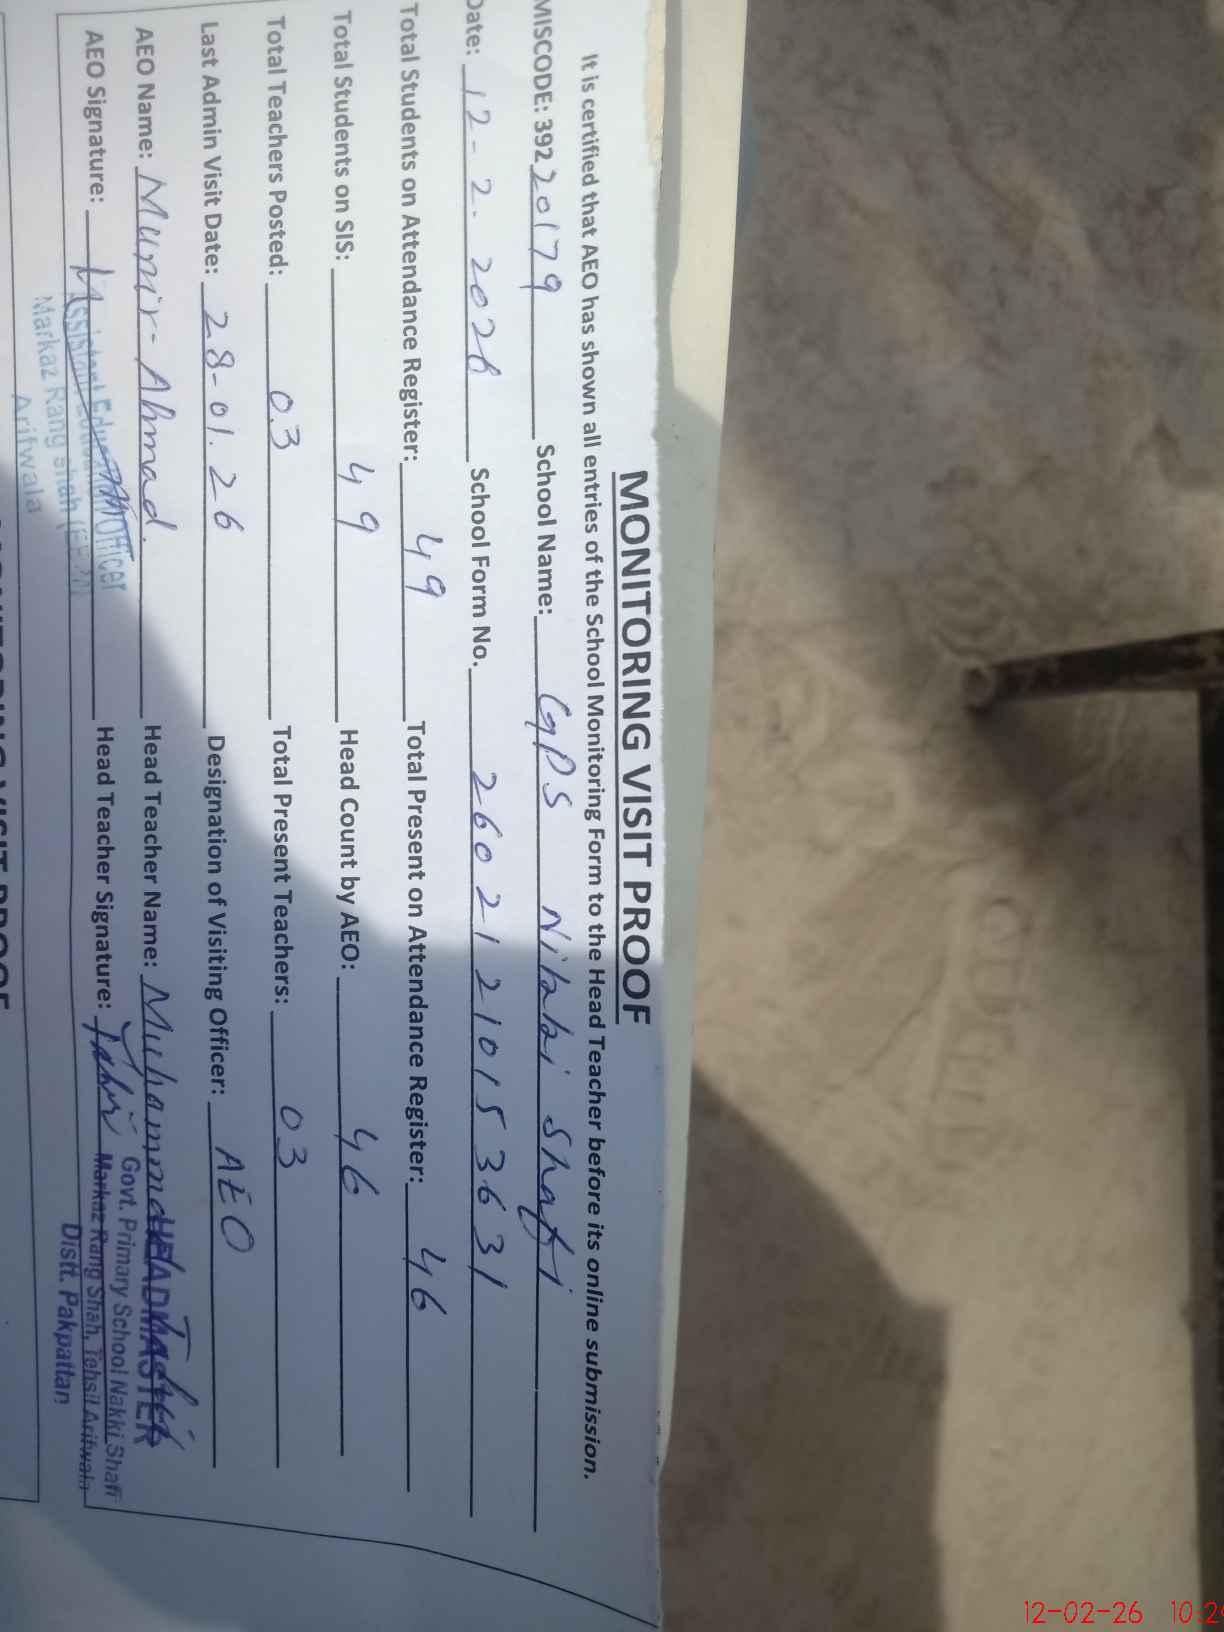 MONITORING VISIT PROOF
It is certified that AEO has shown all entries of the School Monitoring Form to the Head Teacher before its online submission.
MISCODE: 39220179 School Name: GPS Nikki Shafi
Date: 12-2-2026 School Form No. 26021210153631
Total Students on Attendance Register: 49 Total Present on Attendance Register: 46
Total Students on SIS: 49 Head Count by AEO: 46
Total Teachers Posted: 03 Total Present Teachers: 03
Last Admin Visit Date: 28-01.26 Designation of Visiting Officer: AEO
AEO Name: Munir Ahmad. Head Teacher Name: Muhammad
HEADMASTER
AEO Signature: Head Teacher Signature: Tahir
Govt. Primary School Nakki Shafi
Markaz Rang Shah, Tehsil Arifwala
Distt. Pakpattan
Assistant Education Officer
Markaz Rang Shah
Arifwala
12-02-26